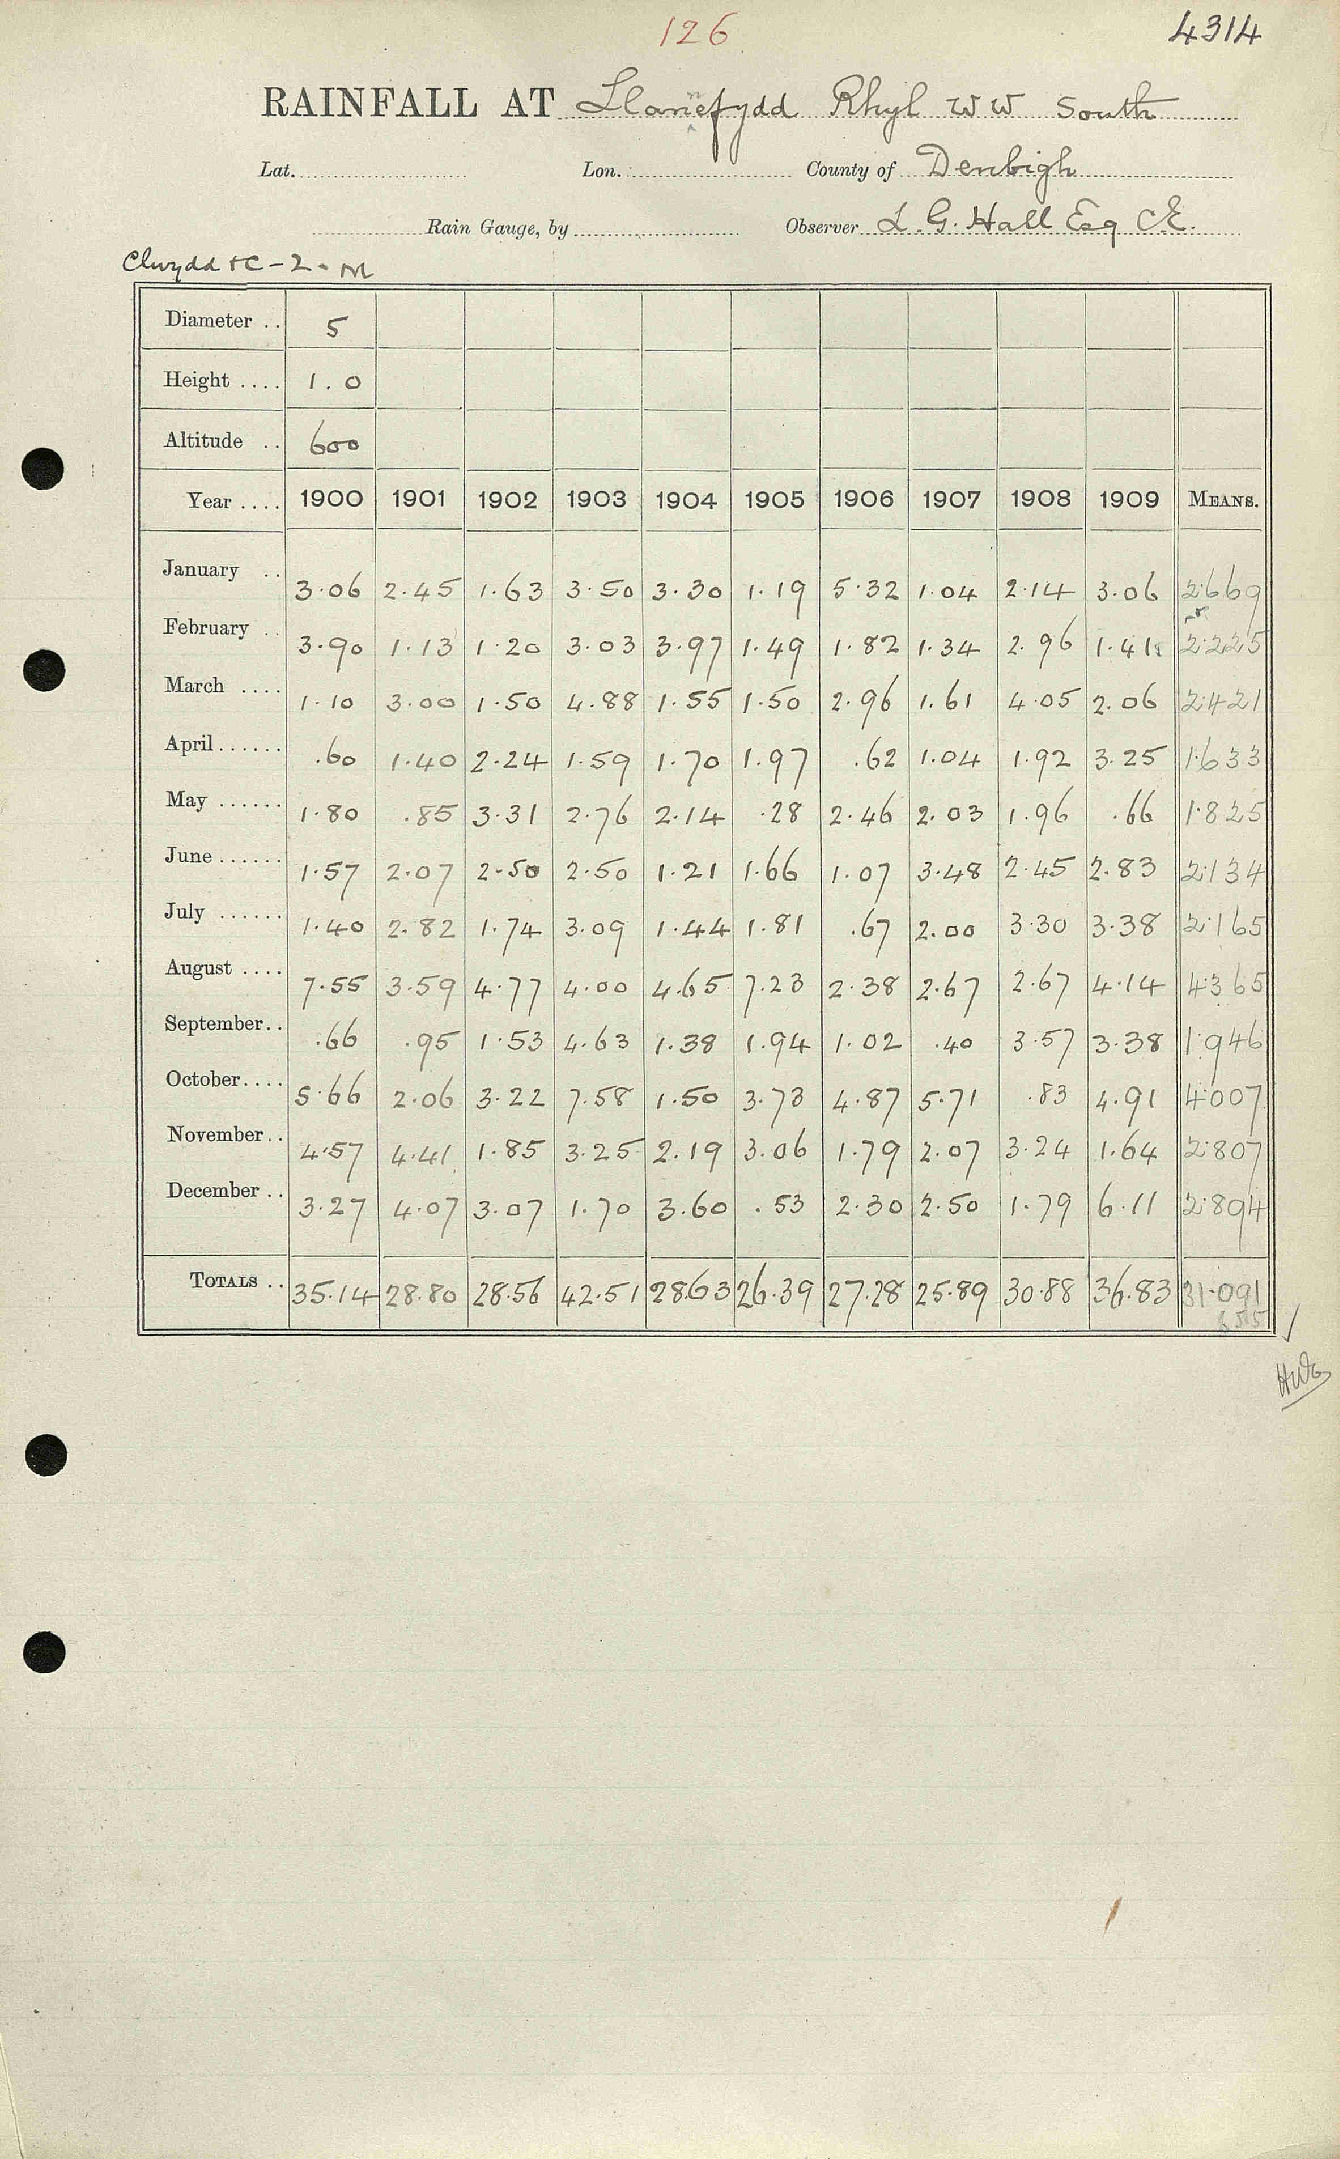 126
4314
RAINFALL AT Llanefydd Rhyl W W South
Lat. Lon. County of Denbigh
Rain Gauge, by Observer L. G. Hall Esq C.E.
Clwydd &C - 2. M
Diameter .. 5
Height .... 1.0
Altitude .. 600
Year .... 1900 1901 1902 1903 1904 1905 1906 1907 1908 1909 MEANS.
January .. 3.06 2.45 1.63 3.50 3.30 1.19 5.32 1.04 2.14 3.06 2.669
February .. 3.90 1.13 1.20 3.03 3.97 1.49 1.82 1.34 2.96 1.41 2.225
March .... 1.10 3.00 1.50 4.88 1.55 1.50 2.96 1.61 4.05 2.06 2.421
April...... .60 1.40 2.24 1.59 1.70 1.97 .62 1.04 1.92 3.25 1.633
May ...... 1.80 .85 3.31 2.76 2.14 .28 2.46 2.03 1.96 .66 1.825
June ...... 1.57 2.07 2.50 2.50 1.21 1.66 1.07 3.48 2.45 2.83 2.134
July ...... 1.40 2.82 1.74 3.09 1.44 1.81 .67 2.00 3.30 3.38 2.165
August .... 7.55 3.59 4.77 4.00 4.65 7.23 2.38 2.67 2.67 4.14 4.365
September.. .66 .95 1.53 4.63 1.38 1.94 1.02 .40 3.57 3.38 1.946
October.... 5.66 2.06 3.22 7.58 1.50 3.73 4.87 5.71 .83 4.91 4.007
November.. 4.57 4.41 1.85 3.25 2.19 3.06 1.79 2.07 3.24 1.64 2.807
December .. 3.27 4.07 3.07 1.70 3.60 .53 2.30 2.50 1.79 6.11 2.894
TOTALS .. 35.14 28.80 28.56 42.51 28.63 26.39 27.28 25.89 30.88 36.83 31.091